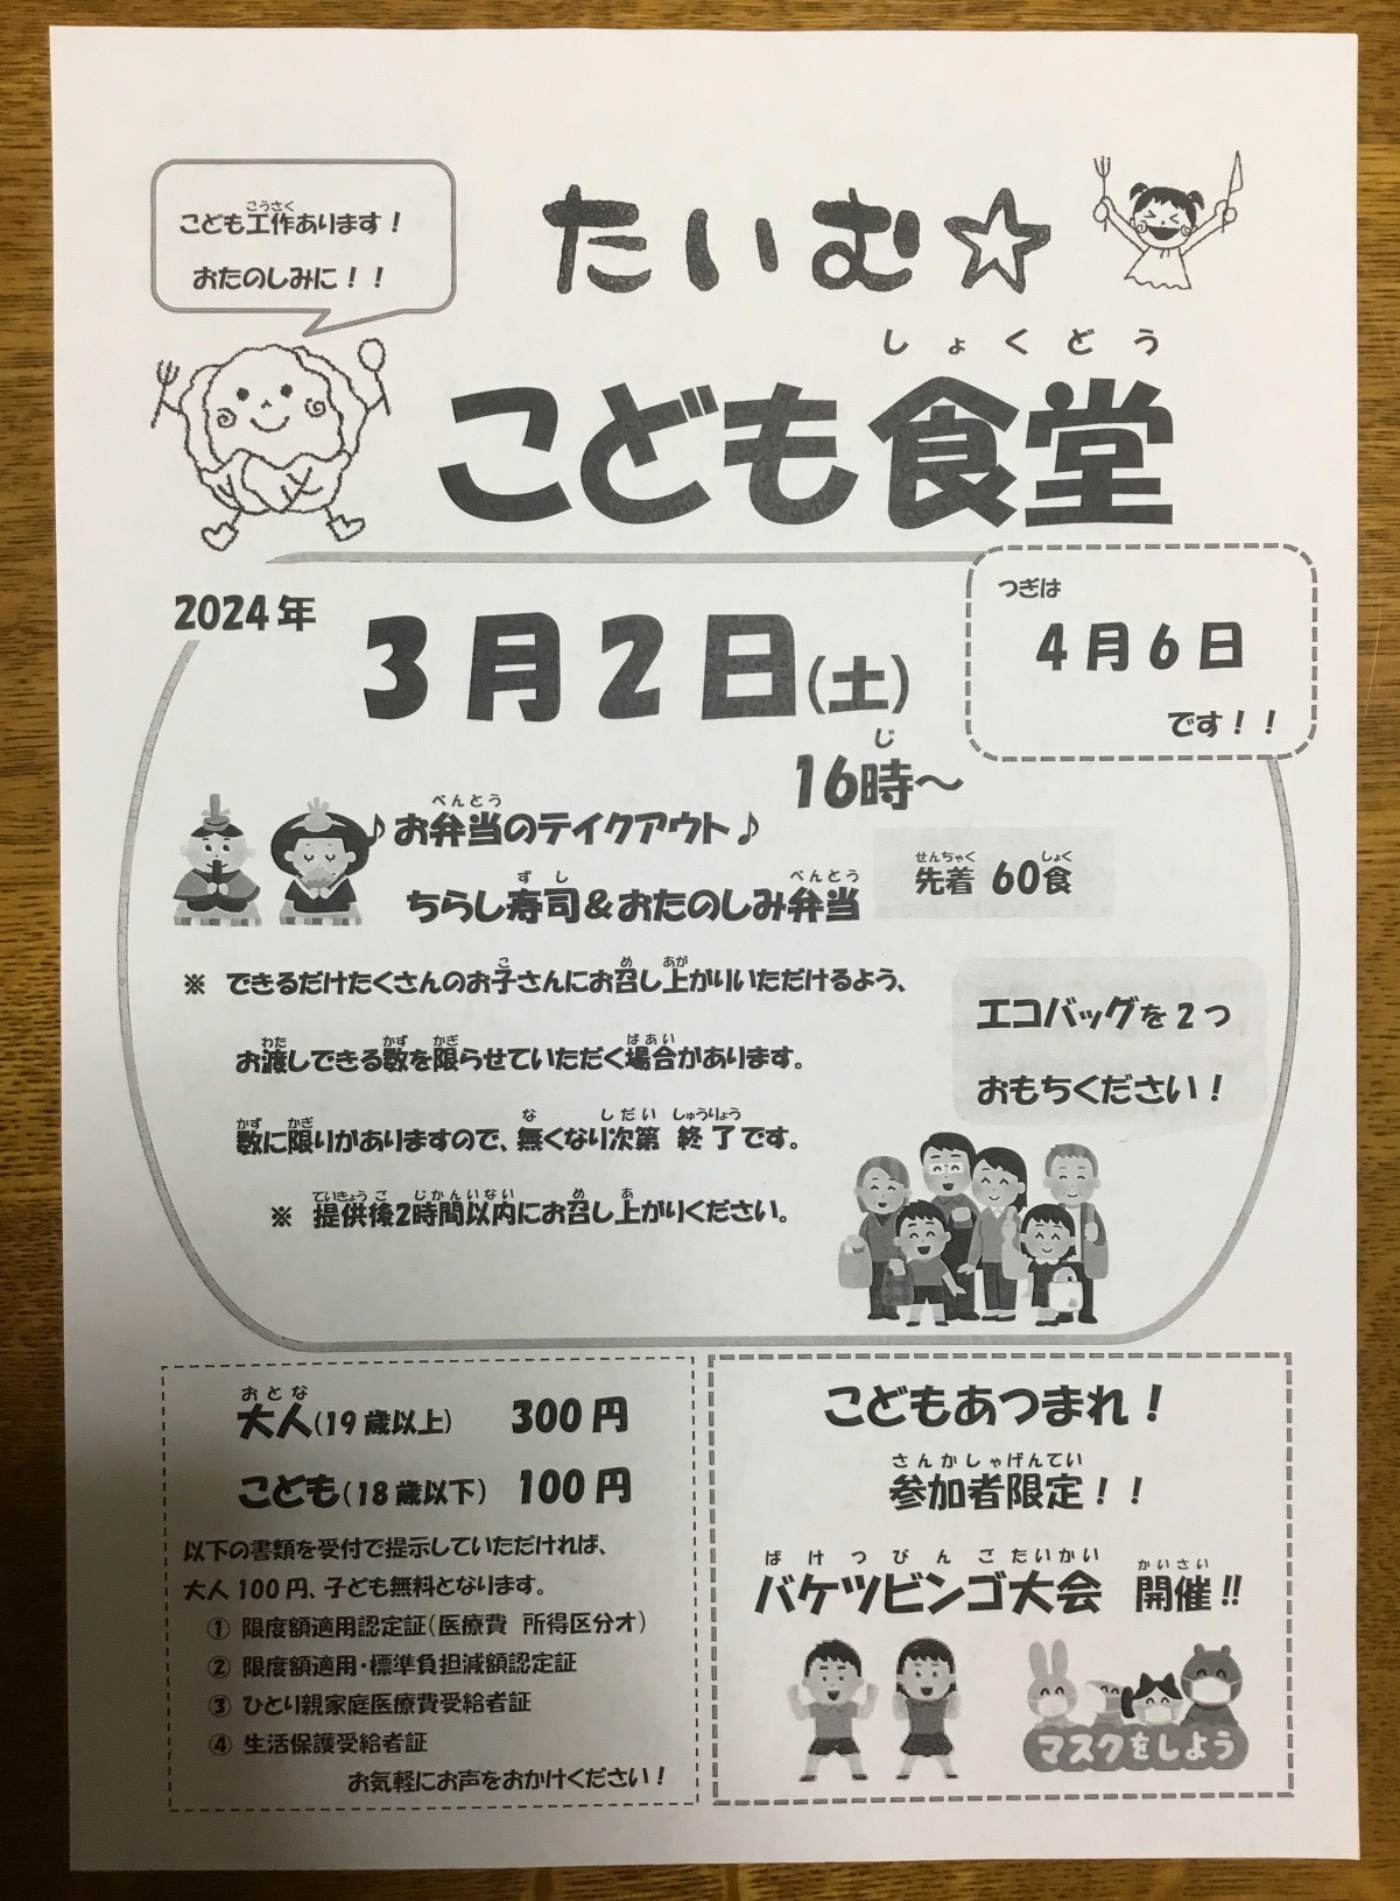 こども工作あります！
おたのしみに！！
たいむ☆
こども食堂
2024年
3月2日(土)
16時～
つぎは
4月6日
です！！
♪お弁当のテイクアウト♪
ちらし寿司＆おたのしみ弁当
先着 60食
※ できるだけたくさんのお子さんにお召し上がりいただけるよう、
お渡しできる数を限らせていただく場合があります。
数に限りがありますので、無くなり次第 終了です。
※ 提供後2時間以内にお召し上がりください。
エコバッグを2つ
おもちください！
大人(19歳以上) 300円
こども(18歳以下) 100円
以下の書類を受付で提示していただければ、
大人100円、子ども無料となります。
① 限度額適用認定証(医療費 所得区分オ)
② 限度額適用・標準負担減額認定証
③ ひとり親家庭医療費受給者証
④ 生活保護受給者証
お気軽にお声をおかけください！
こどもあつまれ！
参加者限定！！
バケツビンゴ大会 開催!!
マスクをしよう